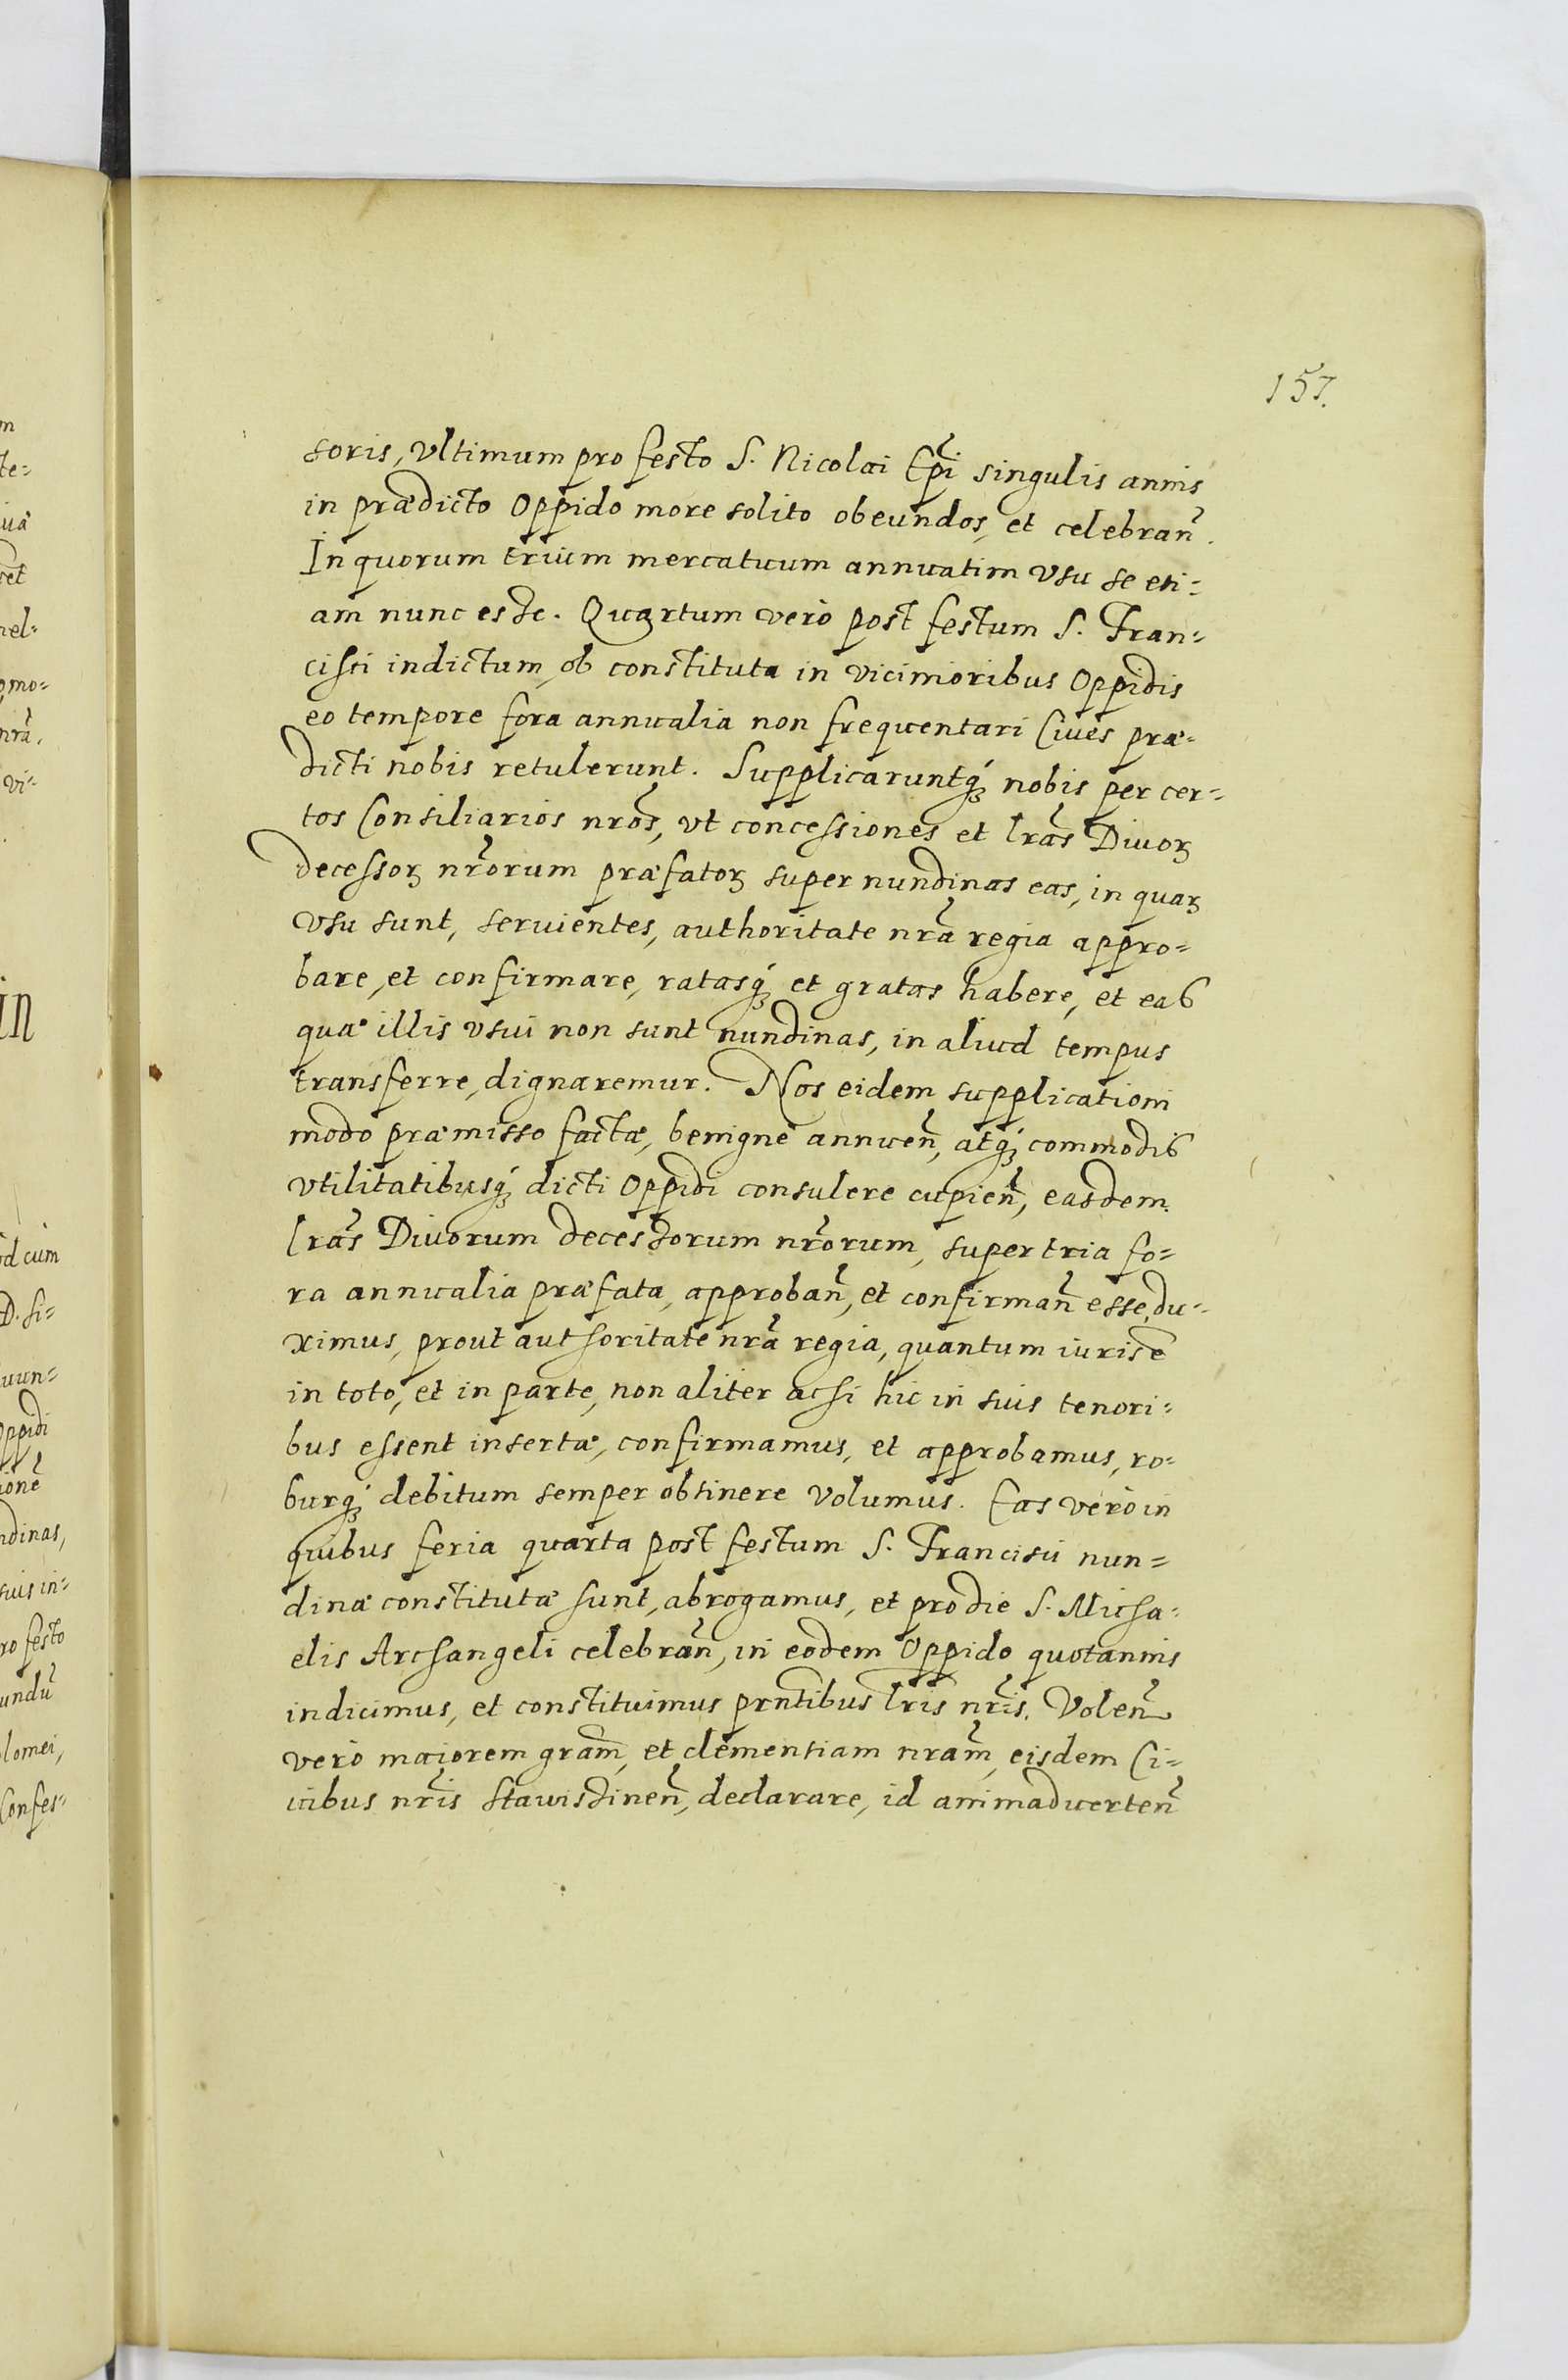 157.
soris, Vltimum pro festo S. Nicolai Epĩ singulis annis
in prædicto Oppido more solito obeundos, et celebrañ.
In quorum trium mercatuum annuatim vsu se eti=
am nunc esse. Quartum verò post festum S. Fran=
cisci indictum, ob constituta in vicinioribus Oppidis
eo tempore fora annualia non frequentari Ciues præ=
dicti nobis retulerunt. Supplicaruntqꝫ nobis per cer=
tos Consiliarios nrõs, vt concessiones et lrãs Diuoꝝ
decessoꝝ nrõrum præfatoꝝ super nundinas eas, in quaꝝ
vsu sunt, seruientes, authoritate nrã regia appro=
bare, et confirmare, ratasqꝫ et gratas habere, et eas
quæ illis vsui non sunt nundinas, in aliud tempus
transferre, dignaremur. Nos eidem supplicationi
modo præmisso factæ, benignè annueñ, atqꝫ commodis
vtilitatibusqꝫ dicti Oppidi consulere cupieñ, easdem
lrãs Diuorum decessorum nrõrum, super tria fo=
ra annualia præfata, approbañ, et confirmañ esse, du=
ximus, prout authoritate nrã regia, quantum iuris ẽ
in toto, et in parte, non aliter acsi hic in suis tenori=
bus essent insertæ, confirmamus, et approbamus, ro=
burqꝫ debitum semper obtinere volumus. Eas verò in
quibus feria quarta post festum S. Francisci nun=
dinæ constitutæ sunt, abrogamus, et pro die S. Micha=
elis Archangeli celebrañ, in eodem Oppido quotannis
indicimus, et constituimus prñtibus lrĩs nrĩs. Voleñ
verò maiorem grãm, et clementiam nrãm, eisdem Ci=
uibus nrĩs StauisSineñ, declarare, id animaduerteñ